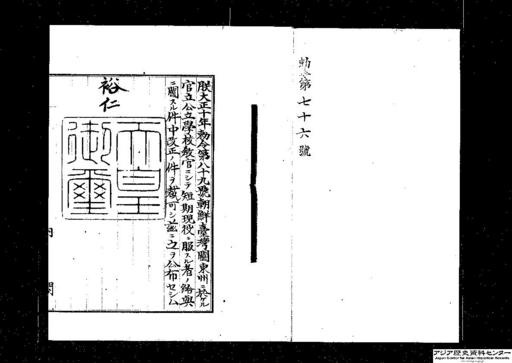 勅令第七十六號
朕大正十年勅令第八十九號朝鮮臺灣關東州ニ於ケル
官立公立學校教官ニシテ短期現役ニ服スル者ノ給與
ニ關スル件中改正ノ件ヲ裁可シ茲ニ之ヲ公布セシム
裕仁
天皇御璽
内
閣
アジア歴史資料センター
Japan Center for Asian Historical Records